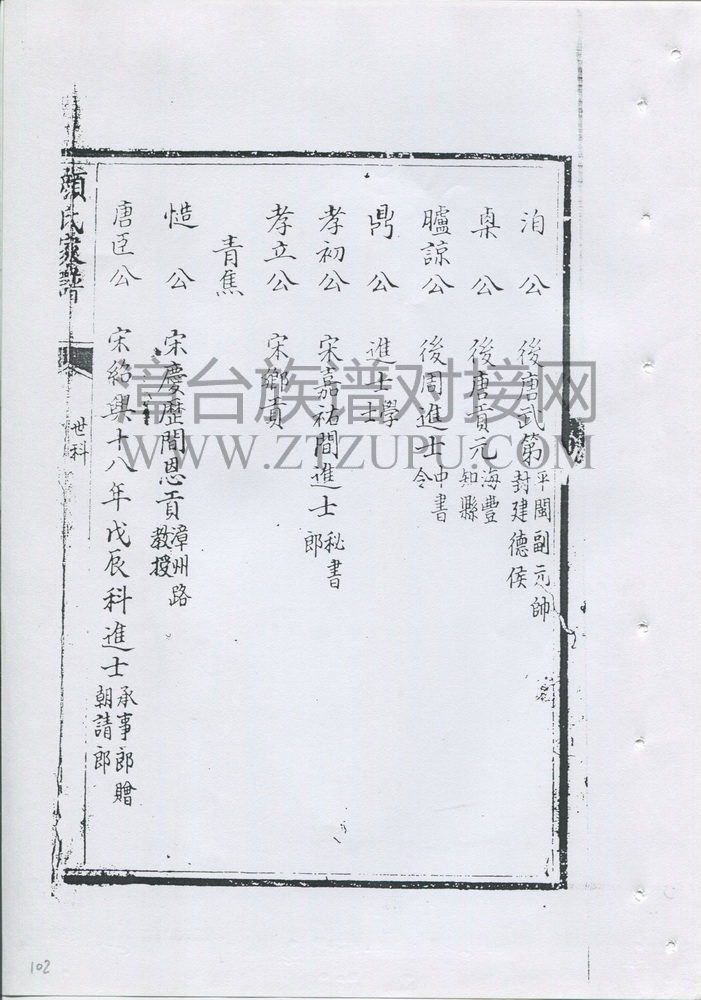 洎公 後唐武第 平閩副元帥封建德侯
公 後唐貢元 海豐知縣
臚諒公 後周進士 中書令
鼎公 進士 學士
孝初公 宋嘉祐間進士 秘書郎
孝立公 宋鄉貢
青焦
慥公 宋慶歷間恩貢 漳州路教授
唐臣公 宋紹興十八年戊辰科進士 承事郎贈朝請郎
顏氏家譜 世科
章台族谱对接网
WWW.ZTZUPU.COM
102